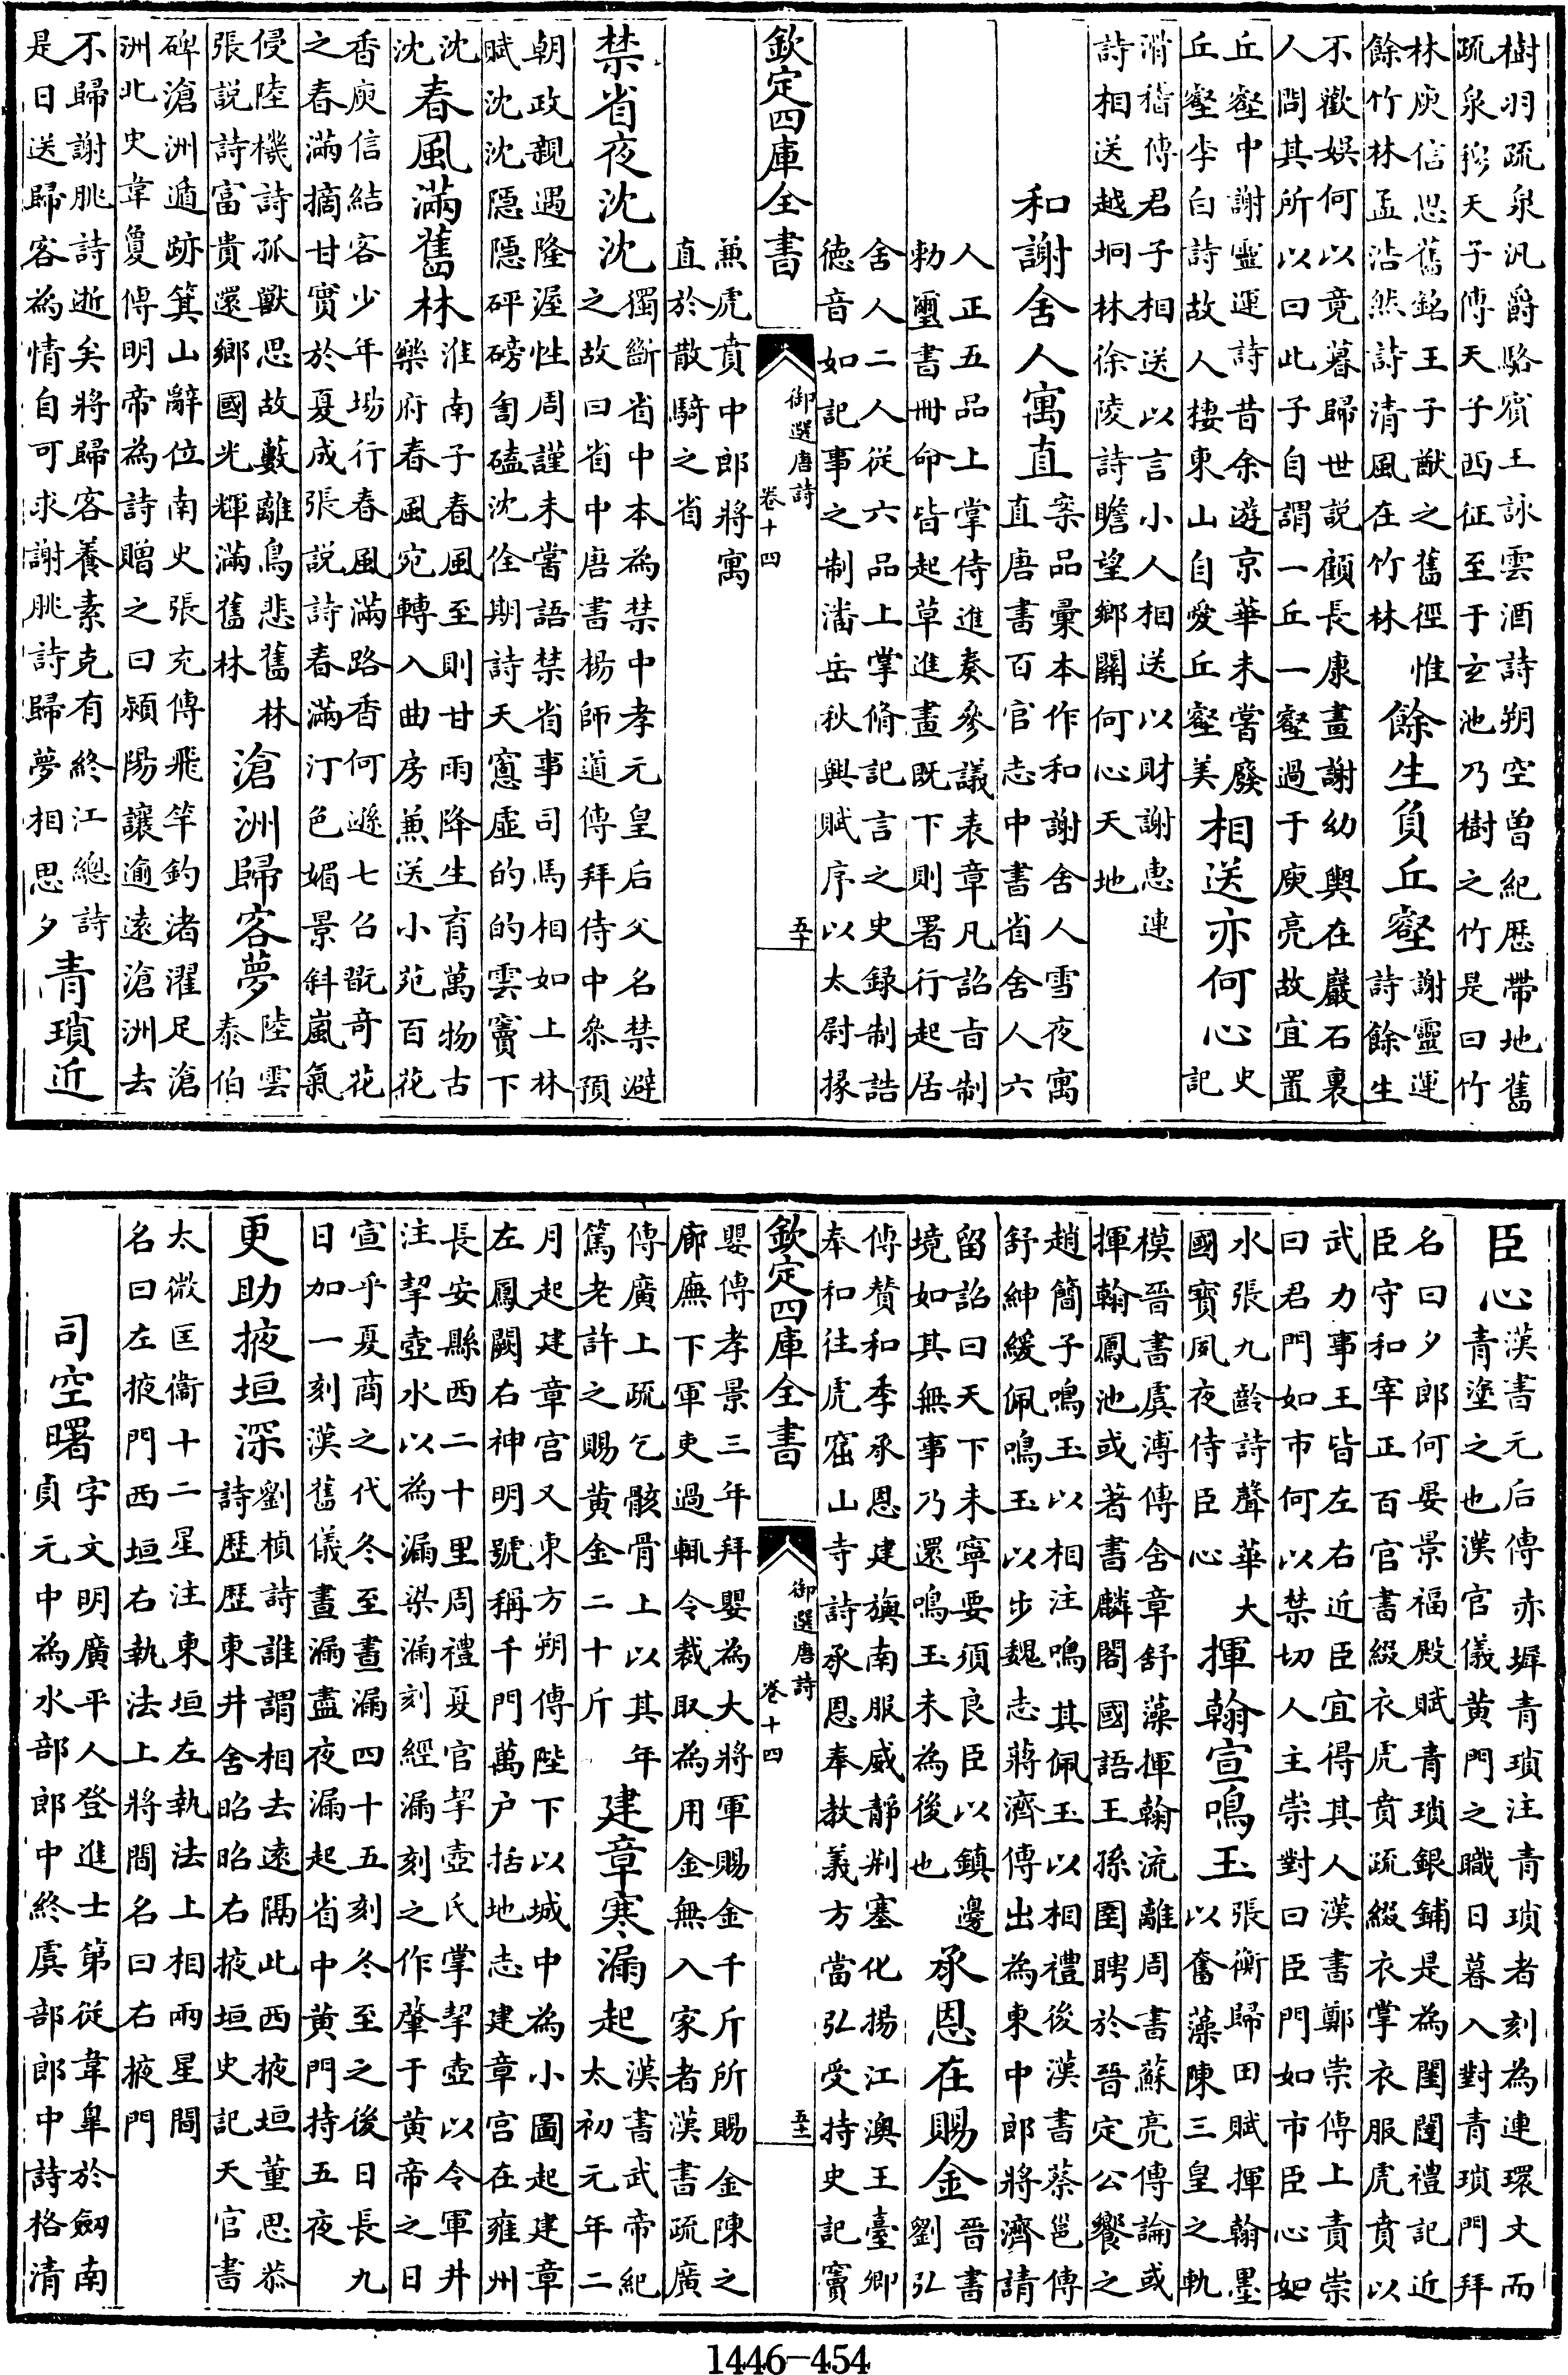 樹羽疏泉汎爵駱賓王詠雲酒詩朔空曽紀歴帶地舊
疏泉移天子傳天子西征至于玄池乃樹之竹是曰竹
林庾信思舊銘王子猷之舊徑惟
餘竹林孟浩然詩清風在竹林
餘生負丘壑
謝靈運
詩餘生
不歡娛何以竟暮歸世説顧長康畫謝幼輿在巖石裏
人問其所以曰此子自謂一丘一壑過于庾亮故宜置
丘壑中謝靈運詩昔余遊京華未嘗廢
丘壑李白詩故人棲東山自愛丘壑美
相送亦何心
史
記
滑稽傳君子相送以言小人相送以財謝惠連
詩相送越坰林徐陵詩瞻望鄉關何心天地
和謝舍人寓直
案品彙本作和謝舍人雪夜寓
直唐書百官志中書省舍人六
人正五品上掌侍進奏參議表章凡詔㫖制
勅璽書冊命皆起草進畫既下則署行起居
舍人二人從六品上掌脩記言之史錄制誥
德音如記事之制潘岳秋興賦序以太尉掾
欽定四庫全書
御選唐詩
卷十四
五十
兼虎賁中郎將寓
直於散騎之省
禁省夜沈沈
獨斷省中本為禁中孝元皇后父名禁避
之故曰省中唐書楊師道傳拜侍中參預
朝政親遇隆渥性周謹未嘗語禁省事司馬相如上林
賦沈沈隱隱砰磅訇磕沈佺期詩天窻虛的的雲竇下
沈
沈
春風滿舊林
淮南子春風至則甘雨降生育萬物古
樂府春風宛轉入曲房兼送小苑百花
香庾信結客少年場行春風滿路香何遜七召既奇花
之春滿摘甘實於夏成張説詩春滿汀色媚景斜嵐氣
侵陸機詩孤獸思故藪離鳥悲舊林
張説詩富貴還鄉國光輝滿舊林
滄洲歸客夢
陸雲
泰伯
碑滄洲遁跡箕山辭位南史張充傳飛竿釣渚濯足滄
洲北史韋敻傳明帝為詩贈之曰潁陽讓逾遠滄洲去
不歸謝朓詩逝矣將歸客養素克有終江總詩
是日送歸客為情自可求謝朓詩歸夢相思夕
青瑣近
臣心
漢書元后傳赤墀青瑣注青瑣者刻為連環文而
青塗之也漢官儀黃門之職日暮入對青瑣門拜
名曰夕郎何晏景福殿賦青瑣銀鋪是為閨闥禮記近
臣守和宰正百官書綴衣虎賁疏綴衣掌衣服虎賁以
武力事王皆左右近臣宜得其人漢書鄭崇傳上責崇
曰君門如市何以禁切人主崇對曰臣門如市臣心如
水張九齡詩聲華大
國寶夙夜侍臣心
揮翰宣鳴玉
張衡歸田賦揮翰墨
以奮藻陳三皇之軌
模晉書虞溥傳舍章舒藻揮翰流離周書蘇亮傳論或
揮翰鳳池或著書麟閣國語王孫圉聘於晉定公饗之
趙簡子鳴玉以相注鳴其佩玉以相禮後漢書蔡邕傳
舒紳緩佩鳴玉以步魏志蔣濟傳出為東中郎將濟請
留詔曰天下未寧要須良臣以鎮邊
境如其無事乃還鳴玉未為後也
承恩在賜金
晉書
劉弘
傳贊和季承恩建旟南服威靜荆塞化揚江澳王臺卿
奉和往虎窟山寺詩承恩奉教義方當弘受持史記竇
欽定四庫全書
御選唐詩
卷十四
五十一
嬰傳孝景三年拜嬰為大將軍賜金千斤所賜金陳之
廊廡下軍吏過輒令裁取為用金無入家者漢書疏廣
傳廣上疏乞骸骨上以其年
篤老許之賜黃金二十斤
建章寒漏起
漢書武帝紀
太初元年二
月起建章宮又東方朔傳陛下以城中為小圖起建章
左鳳闕右神明號稱千門萬户括地志建章宮在雍州
長安縣西二十里周禮夏官挈壺氏掌挈壺以令軍井
注挈壺水以為漏梁漏刻經漏刻之作肇于黃帝之日
宣乎夏商之代冬至晝漏四十五刻冬至之後日長九
日加一刻漢舊儀晝漏盡夜漏起省中黃門持五夜
更助掖垣深
劉楨詩誰謂相去遠隔此西掖垣董思恭
詩歷歷東井舍昭昭右掖垣史記天官書
太微匡衞十二星注東垣左執法上相兩星間
名曰左掖門西垣右執法上將間名曰右掖門
司空曙
字文明廣平人登進士第從韋臯於劒南
貞元中為水部郎中終虞部郎中詩格清
1446-454